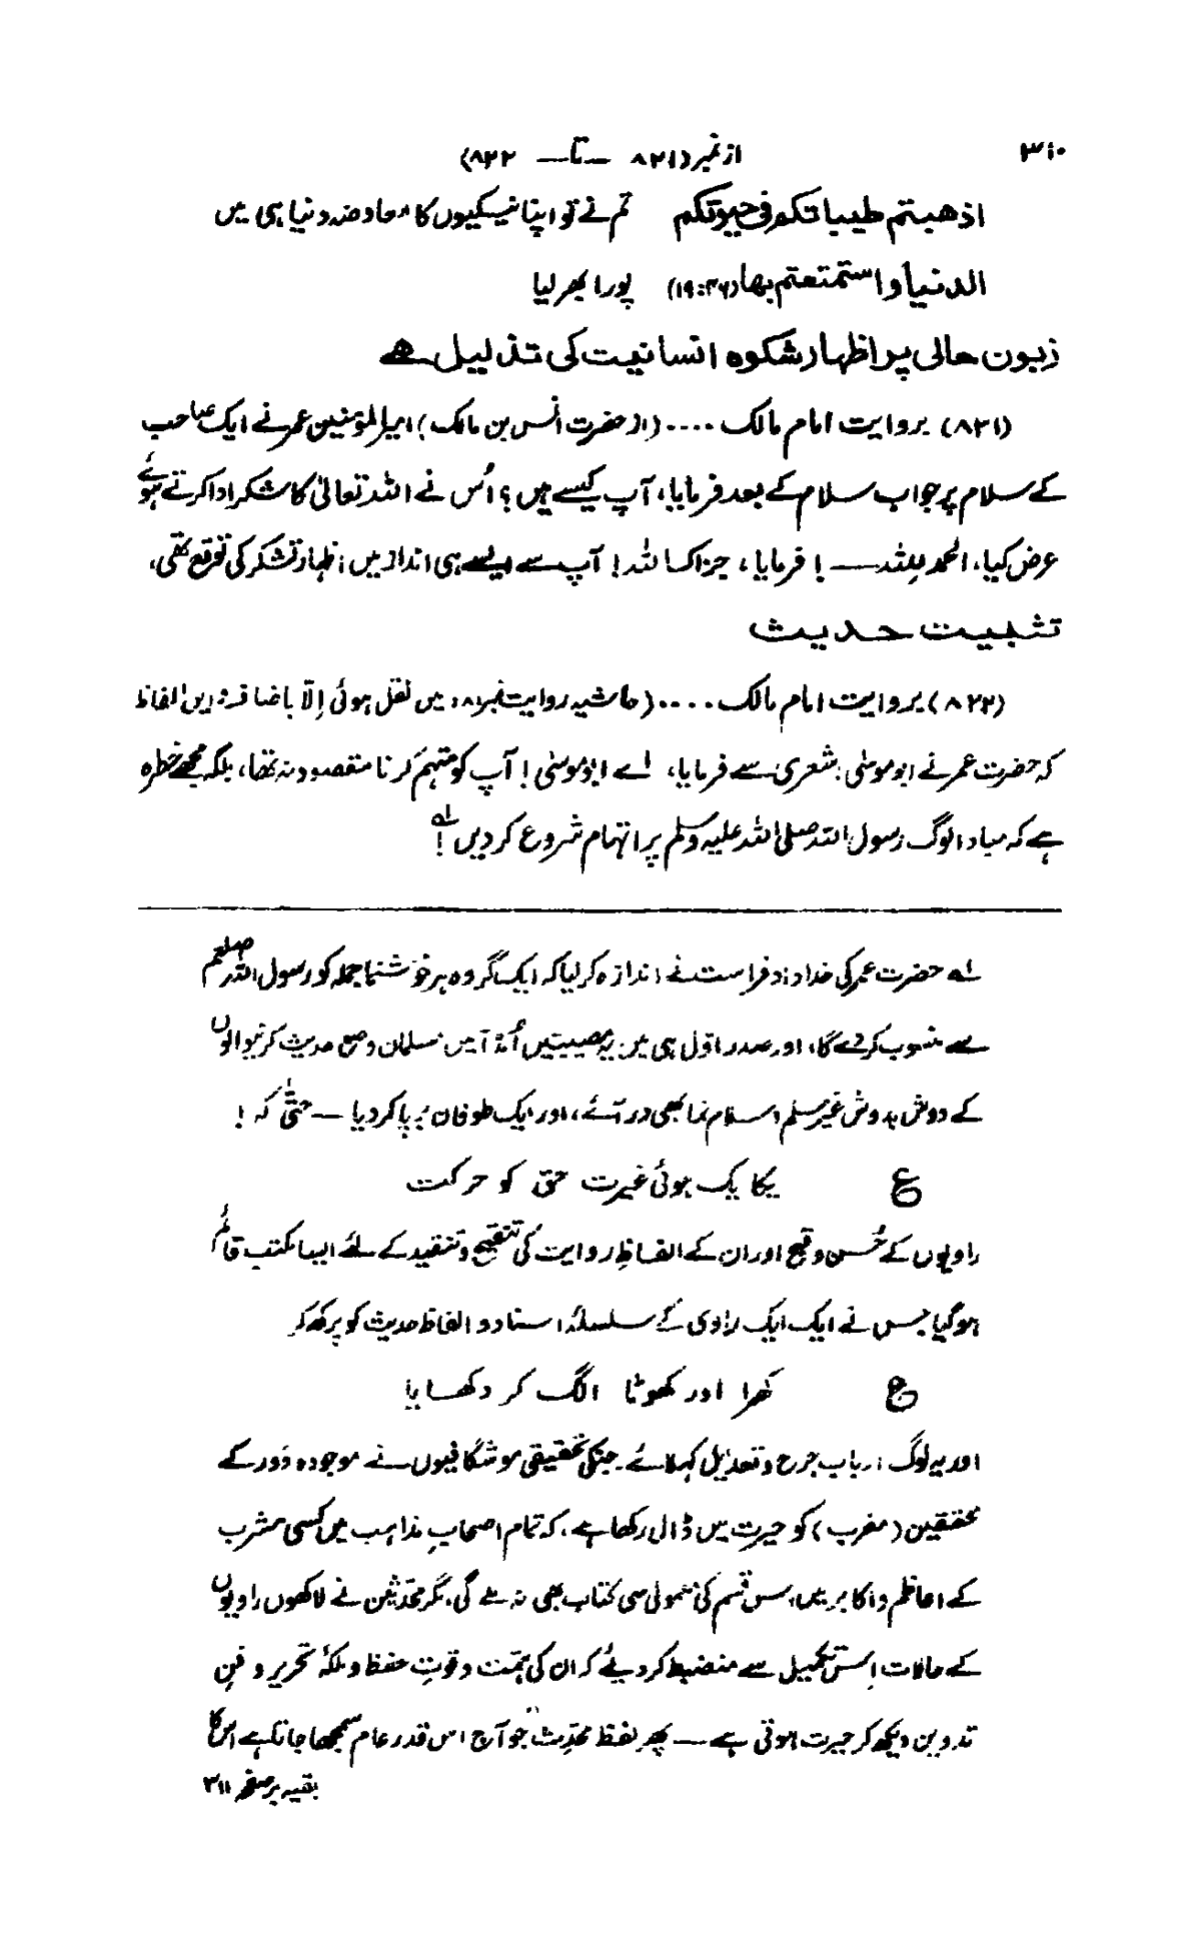 ۳۱۰
از نمبر (۸۲۱ — تا — ۸۲۲)
اذهبتم طیباتکم فی حیوتکم تم نے تو اپنا نیکیوں کا معاوضہ دنیا ہی میں
الدنیا واستمتعتم بها (۱۹:۴۶) پورا بھر لیا
زبون حالی پر اظہار شکوہ انسانیت کی تذلیل ہے
(۸۲۱) بروایت امام مالک .... (از حضرت انس بن مالک) امیر المؤمنین عمر نے ایک صاحب
کے سلام پر جواب سلام کے بعد فرمایا، آپ کیسے ہیں؟ اُس نے اللہ تعالیٰ کا شکر ادا کرتے ہوئے
عرض کیا، الحمد للہ — ! فرمایا، جزاک اللہ! آپ سے ایسے ہی انداز میں اظہار تشکر کی توقع تھی،
تثبیت حدیث
(۸۲۲) بروایت امام مالک .... (حاشیہ روایت نمبر میں نقل ہوئی اِلّا باضافہ ایں الفاظ
کہ حضرت عمر نے ابو موسٰی اشعری سے فرمایا، اے ابو موسٰی! آپ کو متہم کرنا مقصود نہ تھا، بلکہ مجھے خطرہ
ہے کہ مبادا لوگ رسول اللہ صلی اللہ علیہ وسلم پر اتہام شروع کر دیں! لہ
لہ حضرت عمر کی خداداد فراست نے اندازہ کر لیا کہ ایک گروہ ہر خوشنما جملہ کو رسول اللہ صلعم
سے منسوب کر دے گا، اور صدر اول ہی میں یہ مصیبتیں اُمڈ آئیں مسلمان وضع حدیث کرنیوالوں
کے دوش بدوش غیر مسلم اسلام نما بھی در آئے، اور ایک طوفان برپا کر دیا — حتّٰی کہ!
ع یکا یک ہوئی غیرت حق کو حرکت
راویوں کے حُسن و قبح اور ان کے الفاظِ روایت کی تنقیح و تنقید کے لئے ایسا مکتب قائم
ہو گیا جس نے ایک ایک راوی کے سلسلۂ اسناد و الفاظ حدیث کو پرکھ کر
ع کھرا اور کھوٹا الگ کر دکھایا
اور یہ لوگ ارباب جرح و تعدیل کہلائے۔ جنکی تحقیقی موشگافیوں نے موجودہ دَور کے
محققین (مغرب) کو حیرت میں ڈال رکھا ہے، کہ تمام اصحابِ مذاہب میں کسی مشرب
کے اعاظم و اکابر میں اس قسم کی معمولی سی کتاب بھی نہ ملے گی، مگر محدّثین نے لاکھوں راویوں
کے حالات اس تکمیل سے منضبط کر دیئے کہ ان کی ہمت و قوتِ حفظ و ملکۂ تحریر و فنِ
تدوین دیکھ کر حیرت ہوتی ہے — پھر لفظ محدّث جو آج اس قدر عام سمجھا جاتا ہے اس کا
بقیہ بر صفحہ ۳۱۱